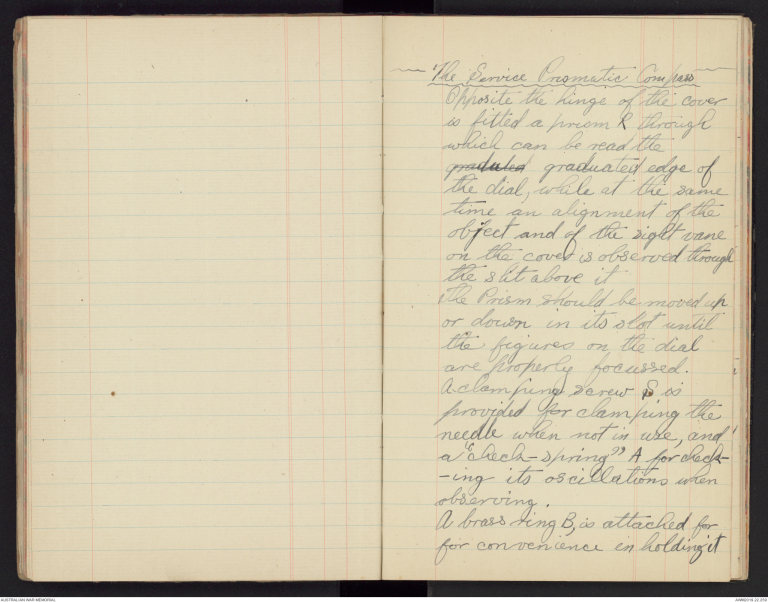 The Service Prismatic Compass
Opposite the hinge of the cover
is fitted a prism R through
which can be read the
graduated graduated edge of
the dial, while at the same
time an alignment of the
object and of the sight vane
on the cover is observed through
the slit above it
The Prism should be moved up
or down in its slot until
the figures on the dial
are properly focussed.
A clamping screw S is
provided for clamping the
needle when not in use, and
a "check-spring" A for check-
-ing its oscillations when
observing.
A brass ring B, is attached for
for convenience in holding it
AUSTRALIAN WAR MEMORIAL